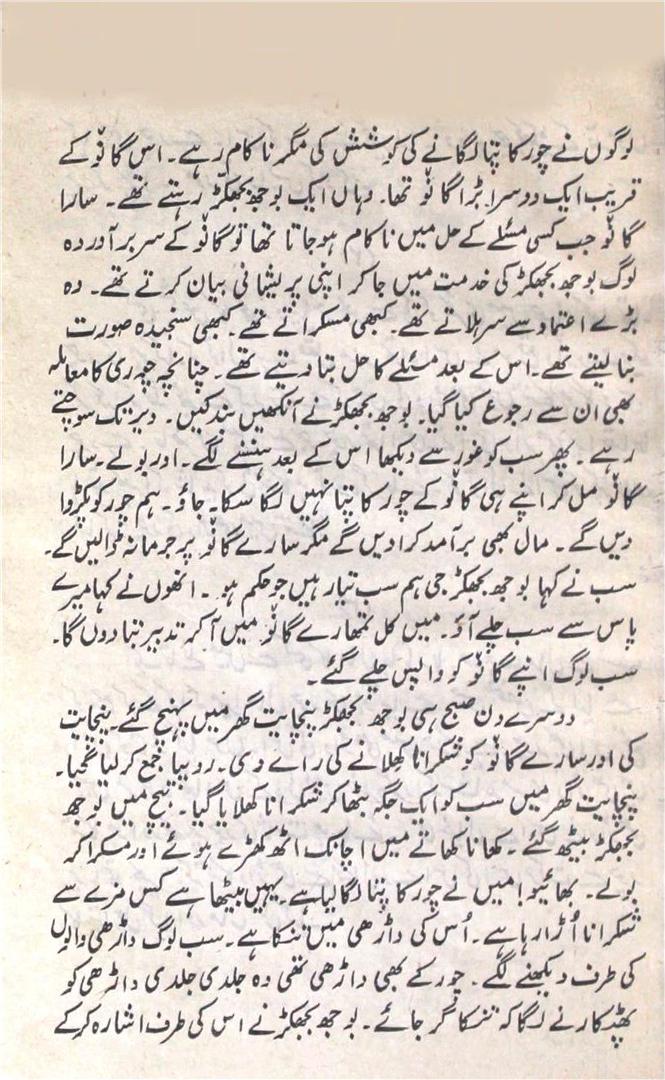 لوگوں نے چور کا پتا لگانے کی کوشش کی مگر ناکام رہے۔ اس گانوٗ کے
قریب ایک دوسرا بڑا گانوٗ تھا۔ وہاں ایک بوجھ بجھکڑ رہتے تھے۔ سارا
گانوٗ جب کسی مسئلے کے حل میں ناکام ہوجاتا تھا تو گانوٗ کے سربرآوردہ
لوگ بوجھ بجھکڑ کی خدمت میں جاکر اپنی پریشانی بیان کرتے تھے۔ وہ
بڑے اعتماد سے سر ہلاتے تھے۔ کبھی مسکراتے تھے۔ کبھی سنجیدہ صورت
بنالیتے تھے۔ اس کے بعد مسئلے کا حل بتا دیتے تھے۔ چنانچہ چوری کا معاملہ
بھی ان سے رجوع کیا گیا۔ بوجھ بجھکڑ نے آنکھیں بند کیں۔ دیر تک سوچتے
رہے۔ پھر سب کو غور سے دیکھا اس کے بعد ہنسنے لگے۔ اور بولے۔ سارا
گانوٗ مل کر اپنے ہی گانوٗ کے چور کا پتا نہیں لگا سکا۔ جاؤ۔ ہم چور کو پکڑوا
دیں گے۔ مال بھی برآمد کرا دیں گے مگر سارے گانوٗ پر جرمانہ ڈالیں گے۔
سب نے کہا بوجھ بجھکڑ جی ہم سب تیار ہیں جو حکم ہو۔ انھوں نے کہا میرے
پاس سے سب چلے آؤ۔ میں کل تمھارے گانوٗ میں آکر تدبیر بتا دوں گا۔
سب لوگ اپنے گانوٗ کو واپس چلے گئے۔
دوسرے دن صبح ہی بوجھ بجھکڑ پنچایت گھر میں پہنچ گئے۔ پنچایت
کی اور سارے گانوٗ کو شکرانا کھلانے کی راے دی۔ روپیا جمع کرلیا گیا۔
پنچایت گھر میں سب کو ایک جگہ بٹھا کر شکرانا کھلایا گیا۔ بیچ میں بوجھ
بجھکڑ بیٹھ گئے۔ کھانا کھاتے میں اچانک اٹھ کھڑے ہوئے اور مسکرا کر
بولے۔ بھائیو! میں نے چور کا پتا لگا لیا ہے۔ یہیں بیٹھا ہے کس مزے سے
شکرانا اُڑا رہا ہے۔ اُس کی داڑھی میں تنکا ہے۔ سب لوگ داڑھی والوں
کی طرف دیکھنے لگے۔ چور کے بھی داڑھی تھی وہ جلدی جلدی داڑھی کو
پھٹکارنے لگا کہ تنکا گر جائے۔ بوجھ بجھکڑ نے اس کی طرف اشارہ کرکے